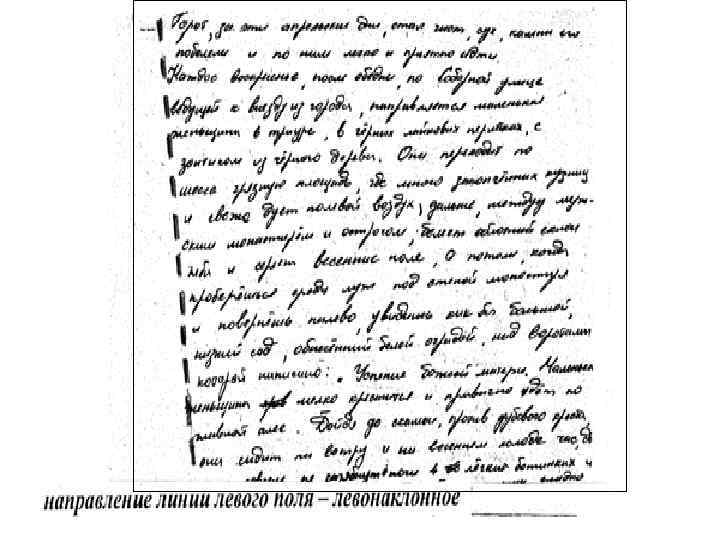 Город, за эти апрельские дни, стал чист, сух, камни его
побелели и по ним легко и приятно идти.
Каждое воскресенье, после обедни, по соборной улице
ведущей к выезду из города, направляется маленькая
женщина в трауре, в чёрных лайковых перчатках, с
зонтиком из чёрного дерева. Она переходит по
шоссе грязную площадь, где много закопчённых кузниц
и свежо дует полевой воздух; дальше, между муж-
ским монастырём и острогом, белеет облачный склон
неба и сереет весеннее поле, а потом, когда
проберёшься среди луж под стеной монастыря
и повернёшь налево, увидишь как бы большой,
низкий сад, обнесённый белой оградой, над воротами
которой написано: „Успение Божией матери. Маленькая
женщина мелко крестится и привычно идёт по
главной алее. Дойдя до скамьи, против дубового креста,
она сидит на ветру и на весеннем холоде час, два
в лёгких ботинках и
направление линии левого поля – левонаклонное